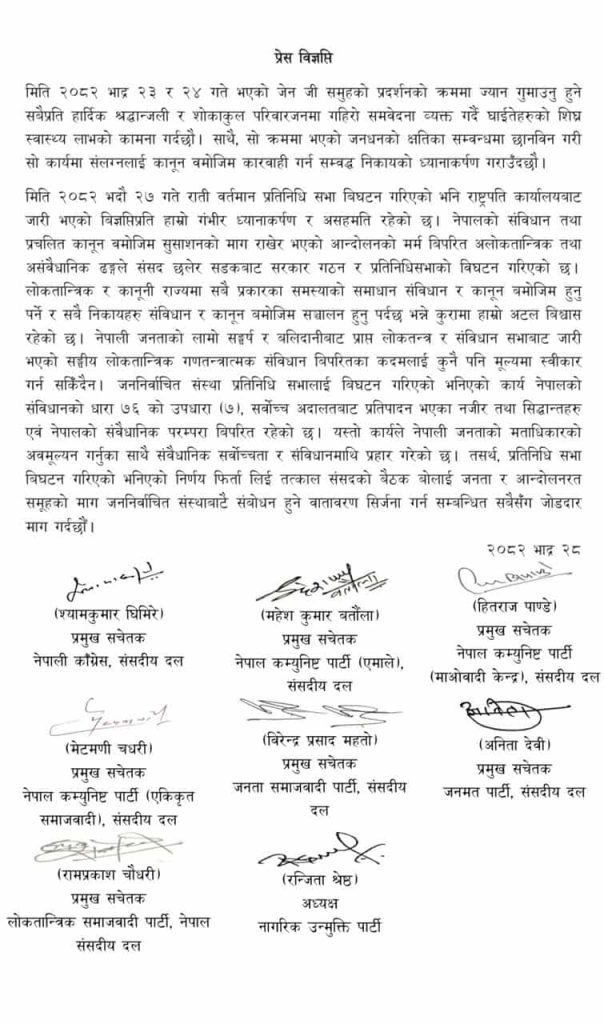 प्रेस विज्ञप्ति
मिति २०८२ भाद्र २३ र २४ गते भएको जेन जी समुहको प्रदर्शनको क्रममा ज्यान गुमाउनु हुने
सबैप्रति हार्दिक श्रद्धान्जली र शोकाकुल परिवारजनमा गहिरो समवेदना व्यक्त गर्दै घाईतेहरुको शिघ्र
स्वास्थ्य लाभको कामना गर्दछौ। साथै, सो क्रममा भएको जनधनको क्षतिका सम्बन्धमा छानविन गरी
सो कार्यमा संलग्नलाई कानून वमोजिम कारवाही गर्न सम्वद्ध निकायको ध्यानाकर्षण गराउँदछौ।
मिति २०८२ भदौ २७ गते राती वर्तमान प्रतिनिधि सभा बिघटन गरिएको भनि राष्ट्रपति कार्यालयबाट
जारी भएको विज्ञप्तिप्रति हाम्रो गंभीर ध्यानाकर्षण र असहमति रहेको छ। नेपालको संविधान तथा
प्रचलित कानून वमोजिम सुसाशनको माग राखेर भएको आन्दोलनको मर्म बिपरित अलोकतान्त्रिक तथा
असंवैधानिक ढङ्गले संसद छलेर सडकबाट सरकार गठन र प्रतिनिधिसभाको बिघटन गरिएको छ।
लोकतान्त्रिक र कानूनी राज्यमा सबै प्रकारका समस्याको समाधान संविधान र कानून बमोजिम हुनु
पर्ने र सबै निकायहरु संविधान र कानून बमोजिम सञ्चालन हुनु पर्दछ भन्ने कुरामा हाम्रो अटल बिश्वास
रहेको छ। नेपाली जनताको लामो सङ्घर्ष र बलिदानीबाट प्राप्त लोकतन्त्र र संविधान सभाबाट जारी
भएको सङ्घीय लोकतान्त्रिक गणतन्त्रात्मक संविधान बिपरितका कदमलाई कुनै पनि मूल्यमा स्वीकार
गर्न सकिँदैन। जननिर्वाचित संस्था प्रतिनिधि सभालाई बिघटन गरिएको भनिएको कार्य नेपालको
संविधानको धारा ७६ को उपधारा (७), सर्वोच्च अदालतबाट प्रतिपादन भएका नजीर तथा सिद्धान्तहरु
एवं नेपालको संवैधानिक परम्परा बिपरित रहेको छ। यस्तो कार्यले नेपाली जनताको मताधिकारको
अवमूल्यन गर्नुका साथै संवैधानिक सर्वोच्चता र संविधानमाथि प्रहार गरेको छ। तसर्थ, प्रतिनिधि सभा
बिघटन गरिएको भनिएको निर्णय फिर्ता लिई तत्काल संसदको बैठक बोलाई जनता र आन्दोलनरत
समूहको माग जननिर्वाचित संस्थाबाटै संबोधन हुने वातावरण सिर्जना गर्न सम्बन्धित सबैसँग जोडदार
माग गर्दछौं।
२०८२ भाद्र २८
(श्यामकुमार घिमिरे)
प्रमुख सचेतक
नेपाली काँग्रेस, संसदीय दल
(महेश कुमार बर्तौला)
प्रमुख सचेतक
नेपाल कम्युनिष्ट पार्टी (एमाले),
संसदीय दल
(हितराज पाण्डे)
प्रमुख सचेतक
नेपाल कम्युनिष्ट पार्टी
(माओवादी केन्द्र), संसदीय दल
(मेटमणी चधरी)
प्रमुख सचेतक
नेपाल कम्युनिष्ट पार्टी (एकिकृत
समाजवादी), संसदीय दल
(बिरेन्द्र प्रसाद महतो)
प्रमुख सचेतक
जनता समाजवादी पार्टी, संसदीय
दल
(अनिता देवी)
प्रमुख सचेतक
जनमत पार्टी, संसदीय दल
(रामप्रकाश चौधरी)
प्रमुख सचेतक
लोकतान्त्रिक समाजवादी पार्टी, नेपाल
संसदीय दल
(रन्जिता श्रेष्ठ)
अध्यक्ष
नागरिक उन्मुक्ति पार्टी